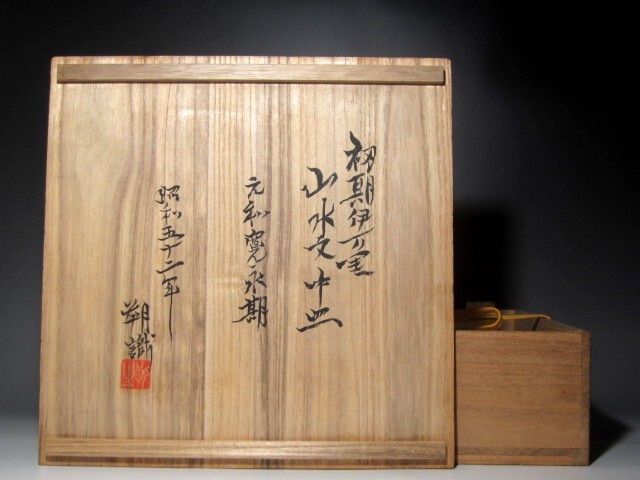 初期伊万里
山水文中皿
元和寛永期
昭和五十二年
朔識